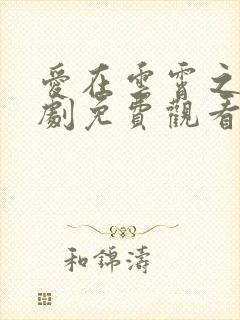 愛在雲霄之
劇免費觀看
和錦濤